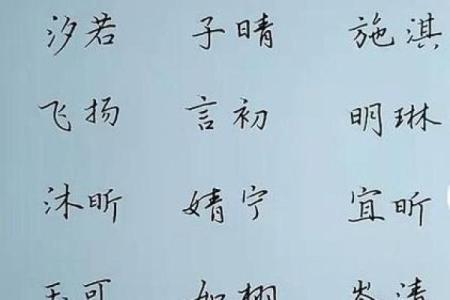 汐若 子晴 施淇
飞扬 言初 明琳
沐昕 婧宁 宜昕
可 如栩